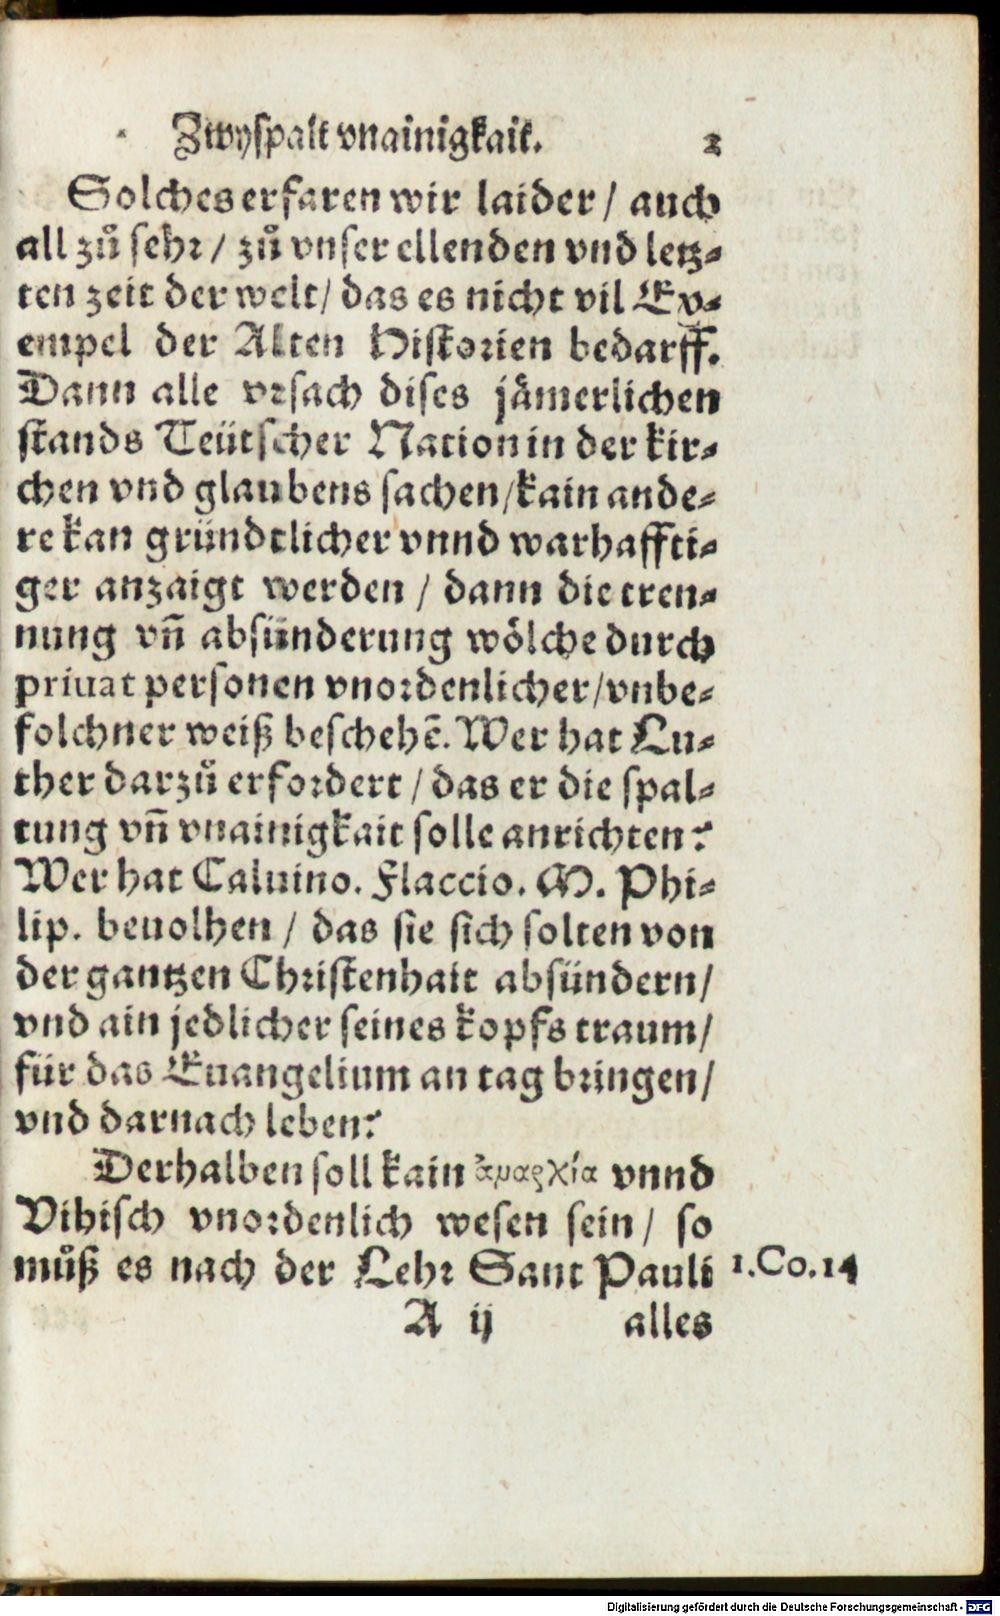 Zwyspalt vnainigkait. 2
Solches erfaren wir laider / auch
all zů sehr / zů vnser ellenden vnd letz⸗
ten zeit der welt / das es nicht vil Ex⸗
empel der Alten Historien bedarff.
Dann alle vrsach dises jämerlichen
stands Teütscher Nation in der kir⸗
chen vnd glaubens sachen / kain ande⸗
re kan gründtlicher vnnd warhaffti⸗
ger anzaigt werden / dann die tren⸗
nung vñ absünderung wölche durch
priuat personen vnordenlicher / vnbe⸗
folchner weiß beschehẽ. Wer hat Lu⸗
ther darzů erfordert / das er die spal⸗
tung vñ vnainigkait solle anrichten?
Wer hat Caluino. Flaccio. M. Phi⸗
lip. beuolhen / das sie sich solten von
der gantzen Christenhait absündern /
vnd ain jedlicher seines kopfs traum /
für das Euangelium an tag bringen /
vnd darnach leben?
Derhalben soll kain ἀμαρχία vnnd
Vihisch vnordenlich wesen sein / so
můß es nach der Lehr Sant Pauli
1.Co.14
A ij alles
Digitalisierung gefördert durch die Deutsche Forschungsgemeinschaft - DFG